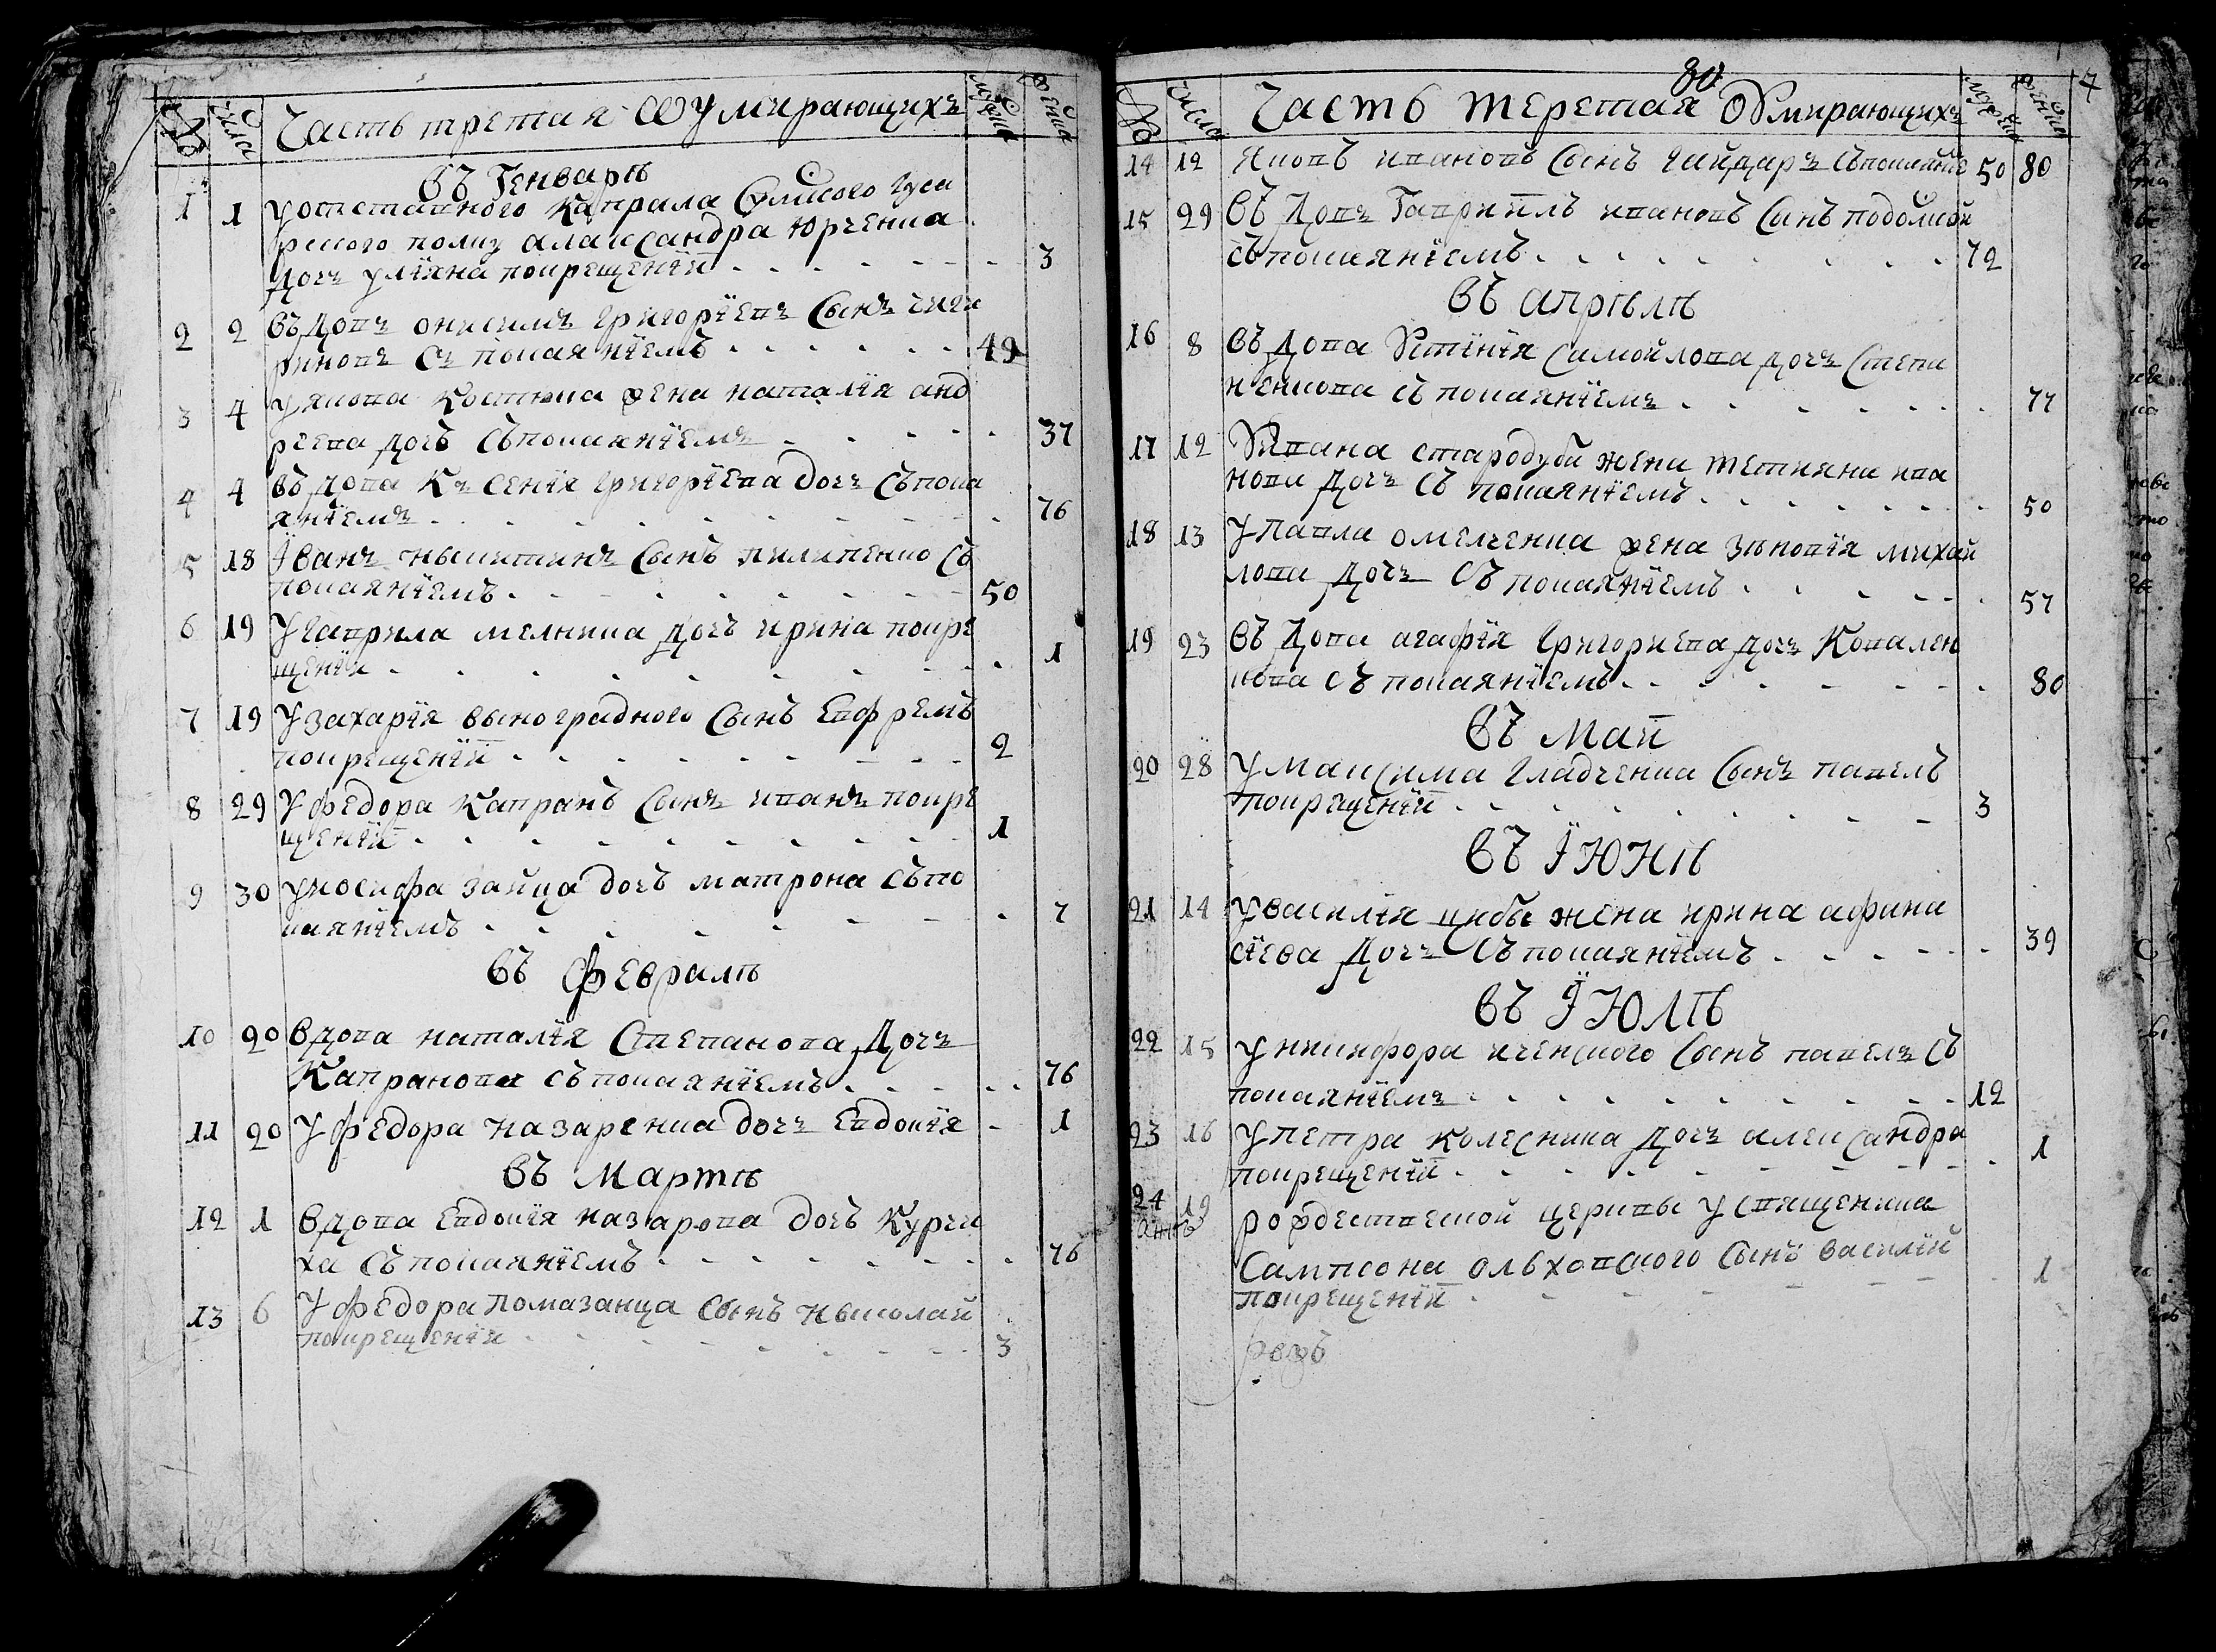 № числа Часть третая О умирающихъ мужеска женска
въ Генварѣ
1 1 У отставного капрала Сумского гуса
рского полку алаксандра Юрченка
дочъ улїяна по крещенїи 3
2 2 въдовъ онисимъ григорїевъ сынъ чиги
риновъ съ покаянїемъ 49
3 4 У якова Костюка жена наталїя анд
реева дочъ съ покаянїемъ 37
4 4 въдова Късенїя григорїева дочъ съ пока
янїемъ 76
5 18 Їванъ никитинъ сынъ пилипенко съ
покаянїемъ 50
6 19 У гаврила мелника дочъ ирина по кре
щенїи 1
7 19 У захарїя выноградного сынъ Евфремъ
по крещенїи 2
8 29 У федора Капранъ сынъ иванъ по кре
щенїи 1
9 30 У иосифа зайца дочъ матрона съ по
каянїемъ 7
въ Февралѣ
10 20 вдова наталїя Степанова дочъ
Капранова съ покаянїемъ 76
11 20 У федора назаренка дочъ Евдокїя 1
въ Мартѣ
12 1 вдова Евдокїя назарова дочъ Курчи
ха съ покаянїемъ 76
13 6 У федора помазанца сынъ николай
по крещенїи 3
80
7
№ числа Часть теретая О умирающихъ мужеска женска
14 12 яковъ ивановъ сынъ гайдаръ съ покаянїе 50 80
15 29 въдовъ Гавриилъ ивановъ сынъ подолской
съ покаянїемъ 72
въ апрѣлѣ
16 8 въдова Устїнїя самойлова дочъ Степа
ненкова съ покаянїемъ 77
17 12 У ивана стародуба жена тетияна ива
нова дочъ съ покаянїемъ 50
18 13 У павла омелченка жена зѣновїя михай
лова дочъ съ покаянїемъ 57
19 23 въдова агафїя григориева дочъ Ковален
кова съ покаянїемъ 80
въ Маи
20 28 У максима гладченка сынъ павелъ
по крещенїи 3
въ Їюнѣ
21 14 У василїя цибы жена ирина афана
сїева дочъ съ покаянїемъ 39
въ Їюлѣ
22 15 У никифора иченского сынъ павелъ съ
покаянїемъ 12
23 16 У петра колесника дочъ александра
по крещенїи 1
24 19 рождественской церквы у священника
Сампсона ольховского сынъ василїй
по крещенїи 1